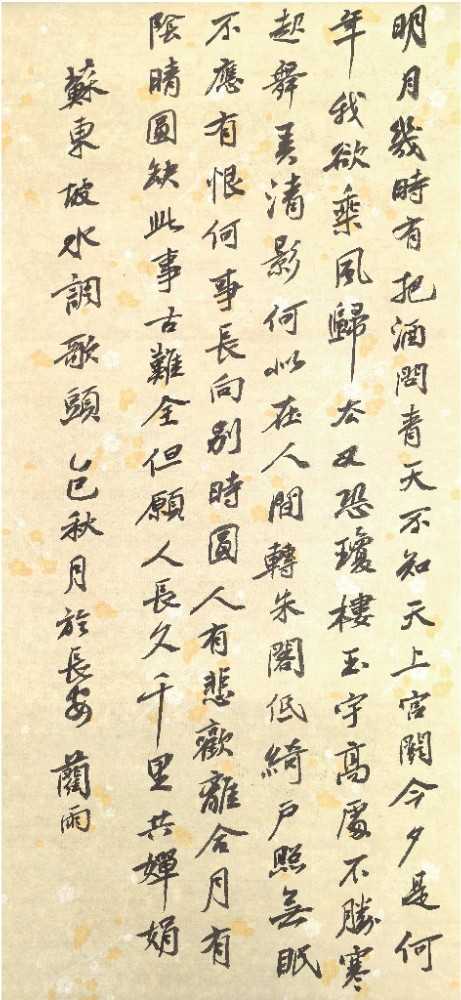 明月幾時有把酒問青天不知天上宮闕今夕是何
年我欲乘風歸去又恐瓊樓玉宇高處不勝寒
起舞弄清影何似在人間轉朱閣低綺戶照無眠
不應有恨何事長向別時圓人有悲歡離合月有
陰晴圓缺此事古難全但願人長久千里共嬋娟
蘇東坡水調歌頭 乙巳秋月於長安 蘭雨